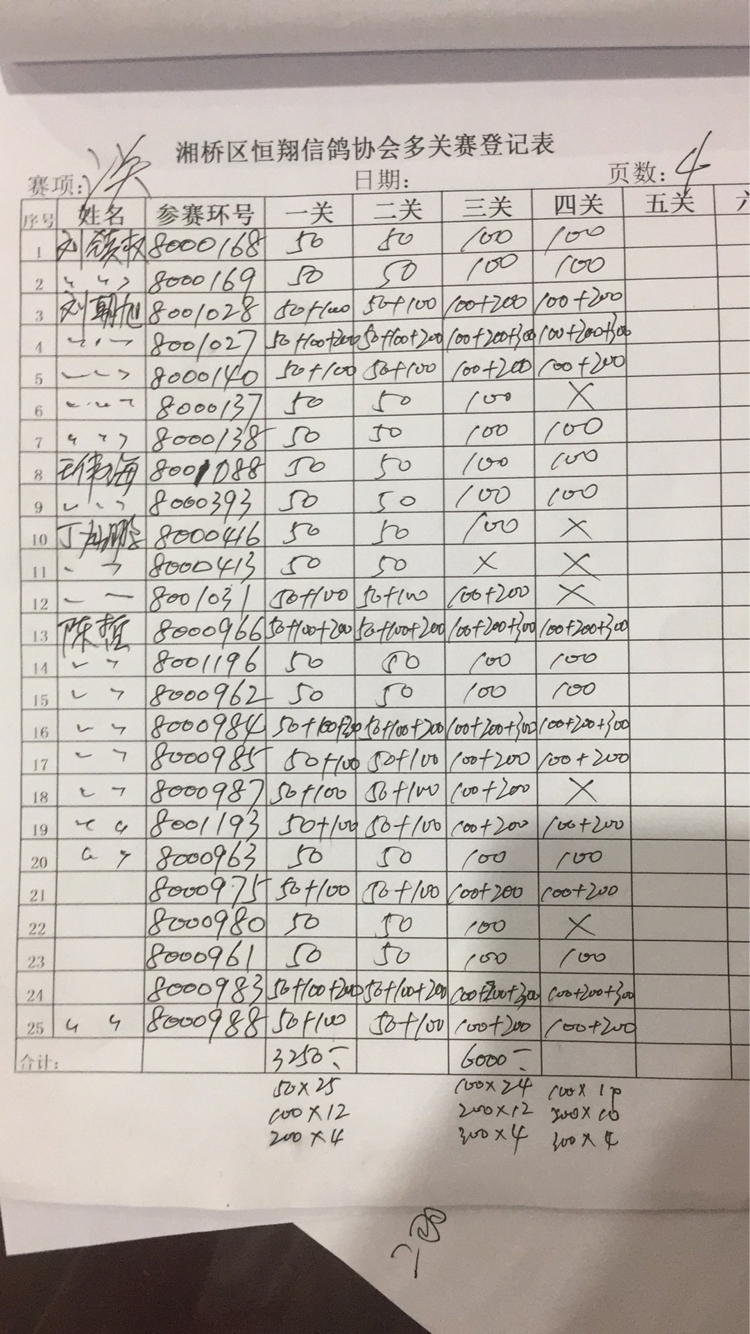 湘桥区恒翔信鸽协会多关赛登记表
赛项: 决 日期: 页数: 4
序号 姓名 参赛环号 一关 二关 三关 四关 五关 六
1 8000168 50 50 100 100
2 〃 〃 8000169 50 50 100 100
3 刘朝旭 8001028 50+100 50+100 100+200 100+200
4 〃 〃 8001027 50+100+200 50+100+200 100+200+300 100+200+300
5 〃 〃 8000140 50+100 50+100 100+200 100+200
6 〃 〃 8000137 50 50 100 ×
7 〃 〃 8000138 50 50 100 100
8 8001088 50 50 100 100
9 〃 〃 8000393 50 50 100 100
10 8000416 50 50 100 ×
11 〃 〃 8000413 50 50 × ×
12 〃 〃 8001031 50+100 50+100 100+200 ×
13 陈哲 8000966 50+100+200 50+100+200 100+200+300 100+200+300
14 〃 〃 8001196 50 50 100 100
15 〃 〃 8000962 50 50 100 100
16 〃 〃 8000984 50+100+200 50+100+200 100+200+300 100+200+300
17 〃 〃 8000985 50+100 50+100 100+200 100+200
18 〃 〃 8000987 50+100 50+100 100+200 ×
19 〃 〃 8001193 50+100 50+100 100+200 100+200
20 〃 〃 8000963 50 50 100 100
21 8000975 50+100 50+100 100+200 100+200
22 8000980 50 50 100 ×
23 8000961 50 50 100 100
24 8000983 50+100+200 50+100+200 100+200+300 100+200+300
25 〃 〃 8000988 50+100 50+100 100+200 100+200
合计: 3250- 6000-
50×25 100×24 100×19
100×12 200×12 200×10
200×4 300×4 300×4